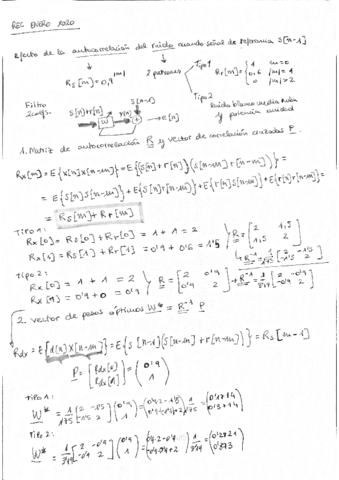 REC ENERO 2020
Efecto de la autocorrelación del ruido cuando señal de referencia S[n-1]
R_S[m] = 0,9^|m|
2 patrones
Tipo 1
R_r[m] = { 1 m=0
0,6 |m|=1
0 |m|>2
Tipo 2
Ruido blanco media nula
y potencia unidad
Filtro
2 coefs.
S[n]+r[n]
S[n-1]
W
e[n]
1. Matriz de autocorrelación R y vector de correlación cruzadas P.
R_x[m] = E{x[n]x[n-m]} = E{(S[n]+r[n])(S[n-m]+r[n-m])} =
= E{S[n]S[n-m]} + E{S[n]r[n-m]} + E{r[n]S[n-m]} + E{r[n]r[n-m]} =
= R_S[m] + R_r[m]
TIPO 1:
R_x[0] = R_S[0] + R_r[0] = 1 + 1 = 2
R_x[1] = R_S[1] + R_r[1] = 0'9 + 0'6 = 1'5
R = [2 1,5
1,5 2]
R^-1 = 1/1'75 [2 -1'5
-1'5 2]
TIPO 2:
R_x[0] = 1 + 1 = 2
R_x[1] = 0'9 + 0 = 0'9
R = [2 0'9
0'9 2]
R^-1 = 1/3'19 [2 -0'9
-0'9 2]
2. vector de pesos óptimos W* = R^-1 P
R_dx = E{d[n]X[n-m]} = E{S[n-1](S[n-m]+r[n-m])} = R_S[m-1]
P = (R_dx[0]
R_dx[1]) = (0'9
1)
TIPO 1:
W* = 1/1'75 [2 -1'5
-1'5 2] (0'9
1) = (0'9·2-1'5
0'9·-1'5+2) 1/1'75 = (0'1714
0'3714)
TIPO 2:
W* = 1/3'19 [2 -0'9
-0'9 2] (0'9
1) = (0'9·2-0'9
0'9·-0'9+2) 1/3'19 = (0'2821
0'373)